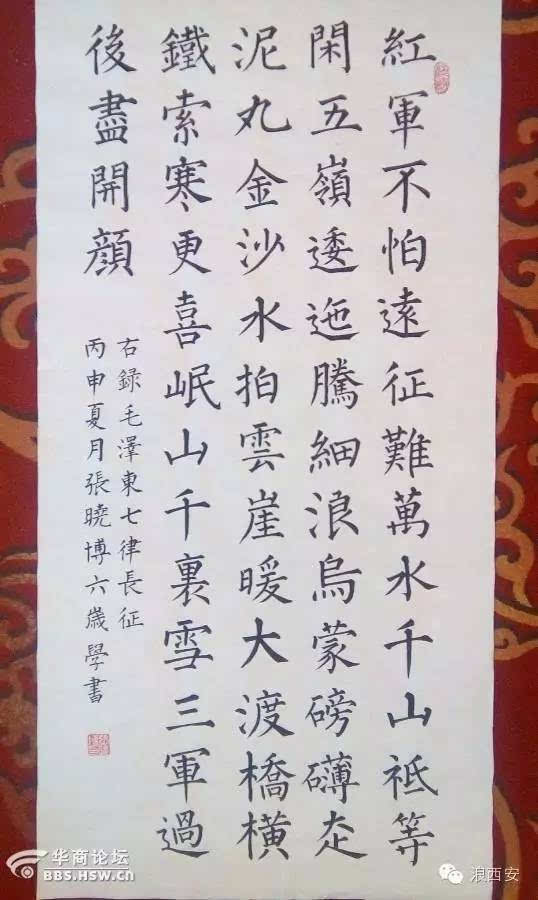 紅軍不怕遠征難萬水千山祗等
閑五嶺逶迤騰細浪烏蒙磅礴走
泥丸金沙水拍雲崖暖大渡橋橫
鐵索寒更喜岷山千裏雪三軍過
後盡開顏
右錄毛澤東七律長征
丙申夏月張曉博六歲學書
华商论坛
BBS.HSW.CN
浪西安